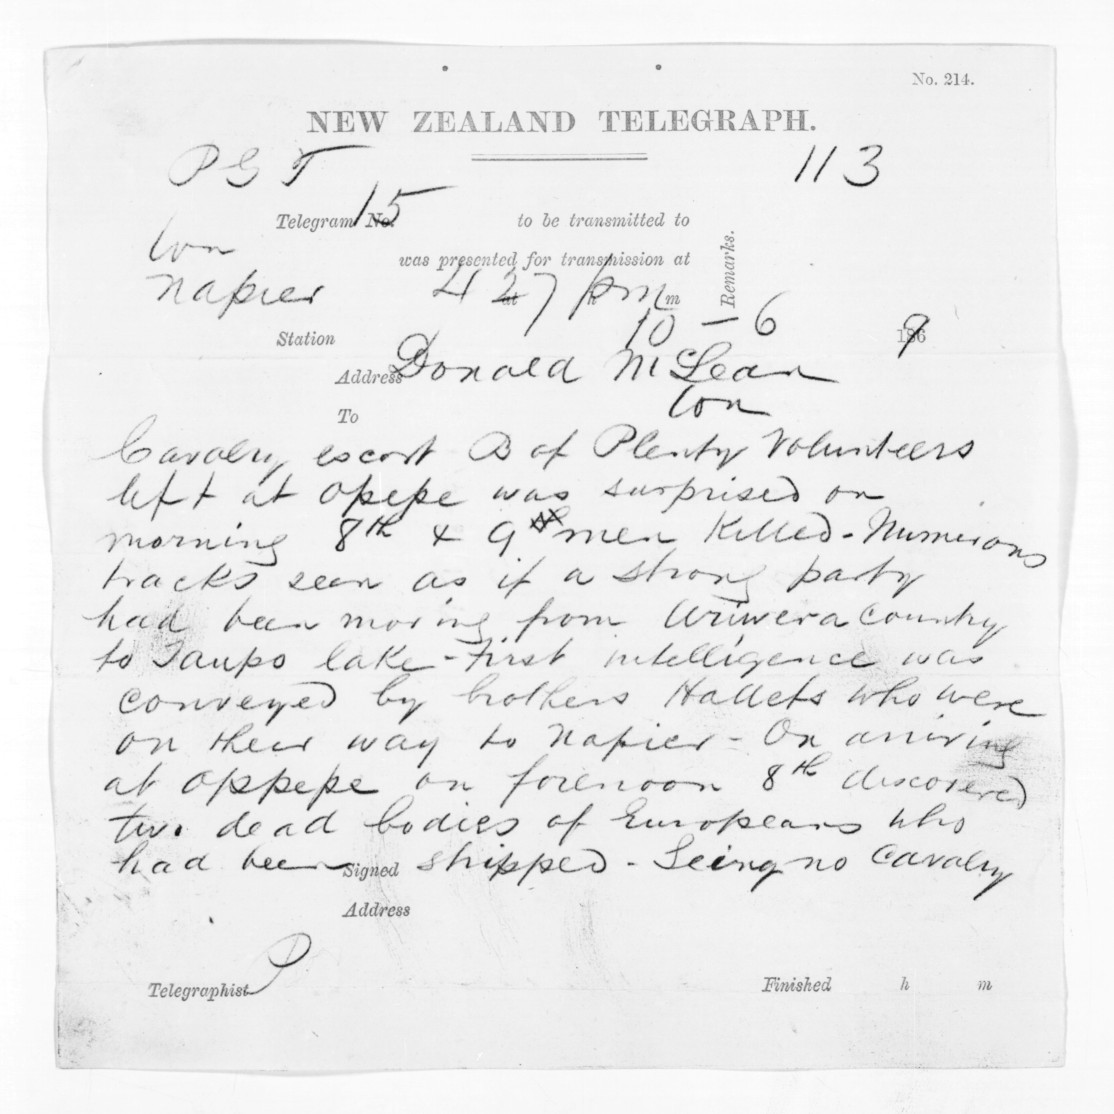 No. 214.
NEW ZEALAND TELEGRAPH.
P G T 113
Telegram No. 15 to be transmitted to
Wn
Napier
was presented for transmission at
at 4 27 h pm m
Remarks.
Station 10 - 6 1869
Address Donald McLean
To Wn
Cavalry escort B of Plenty Volunteers
left at Opepe was surprised on
morning 8th & 9 men Killed - Numerous
tracks seen as if a strong party
had been moving from Uriwera Country
to Taupo lake - First intelligence was
conveyed by brothers Hallets who were
on their way to Napier - On arriving
at Oppepe on forenoon 8th discovered
two dead bodies of Europeans who
had been stripped - Seeing no Cavalry
Signed
Address
Telegraphist P Finished h m